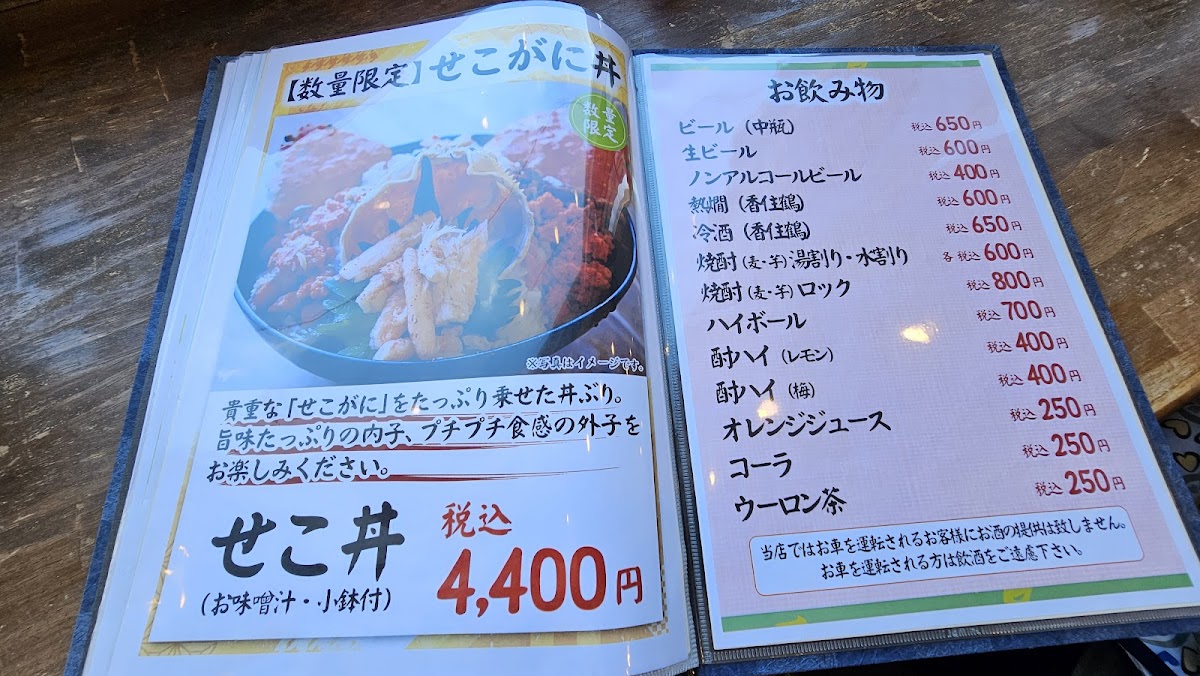 【数量限定】せこがに丼
数量
限定
※写真はイメージです。
貴重な「せこがに」をたっぷり乗せた丼ぶり。
旨味たっぷりの内子、プチプチ食感の外子を
お楽しみください。
せこ丼
(お味噌汁・小鉢付)
税込
4,400円
お飲み物
ビール(中瓶) 税込650円
生ビール 税込600円
ノンアルコールビール 税込400円
熱燗(香住鶴) 税込600円
冷酒(香住鶴) 税込650円
焼酎(麦・芋)湯割り・水割り 各 税込600円
焼酎(麦・芋)ロック 税込800円
ハイボール 税込700円
酎ハイ(レモン) 税込400円
酎ハイ(梅) 税込400円
オレンジジュース 税込250円
コーラ 税込250円
ウーロン茶 税込250円
当店ではお車を運転されるお客様にお酒の提供は致しません。
お車を運転される方は飲酒をご遠慮下さい。